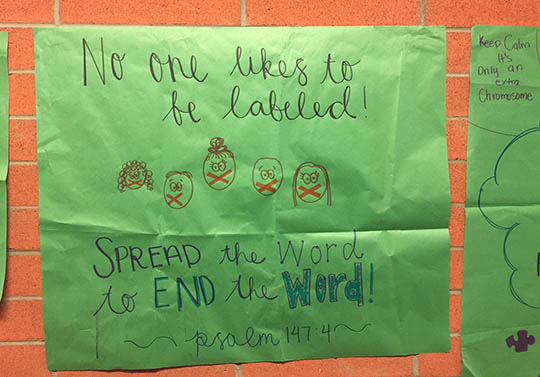 No one likes to
be labeled!
SPREAD the Word
to END the Word!
psalm 147:4
Keep Calm
It's
Only an
extra
Chromosome